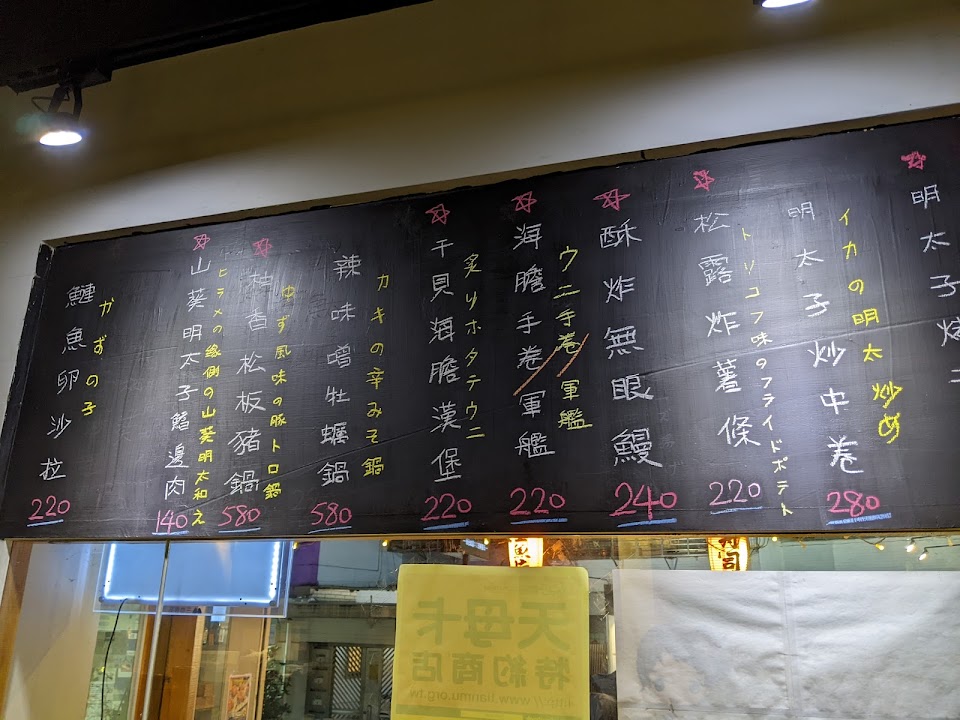 明太子
イカの明太炒め
明太子炒中卷
280
トリュフ味のフライドポテト
松露炸薯條
220
酥炸無眼鰻
240
ウニ手巻/軍艦
海膽手卷/軍艦
220
炙リホタテウニ
干貝海膽漢堡
220
カキの辛みそ鍋
辣味噌牡蠣鍋
580
ゆず風味の豚トロ鍋
柚香松板豬鍋
580
ヒラメの縁側の山葵明太和え
山葵明太子鰭邊肉
140
かずの子
鰊魚卵沙拉
220
天母卡
特約商店
http://www.tianmu.org.tw